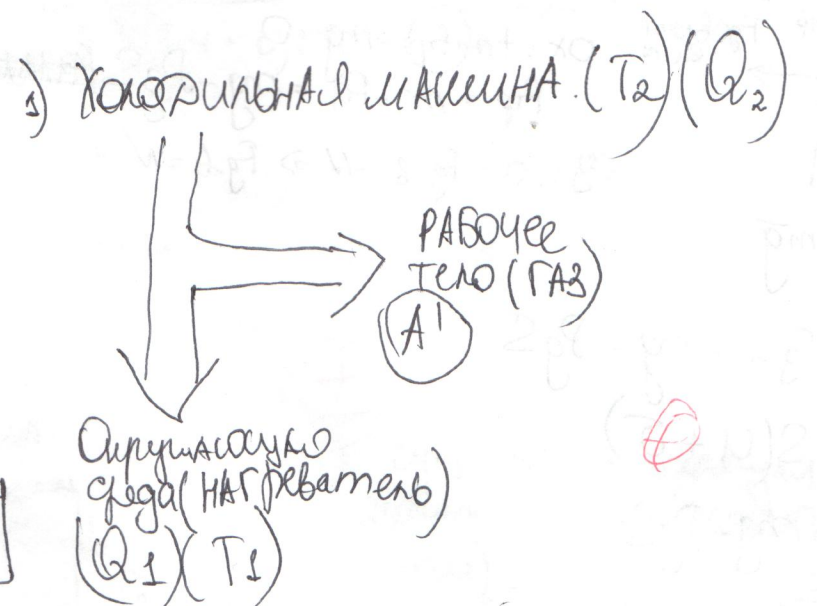 1) Холодильная машина. (T2) (Q2)
рабочее
тело (газ)
A'
Окружающую
среда (нагреватель)
(Q1) (T1)